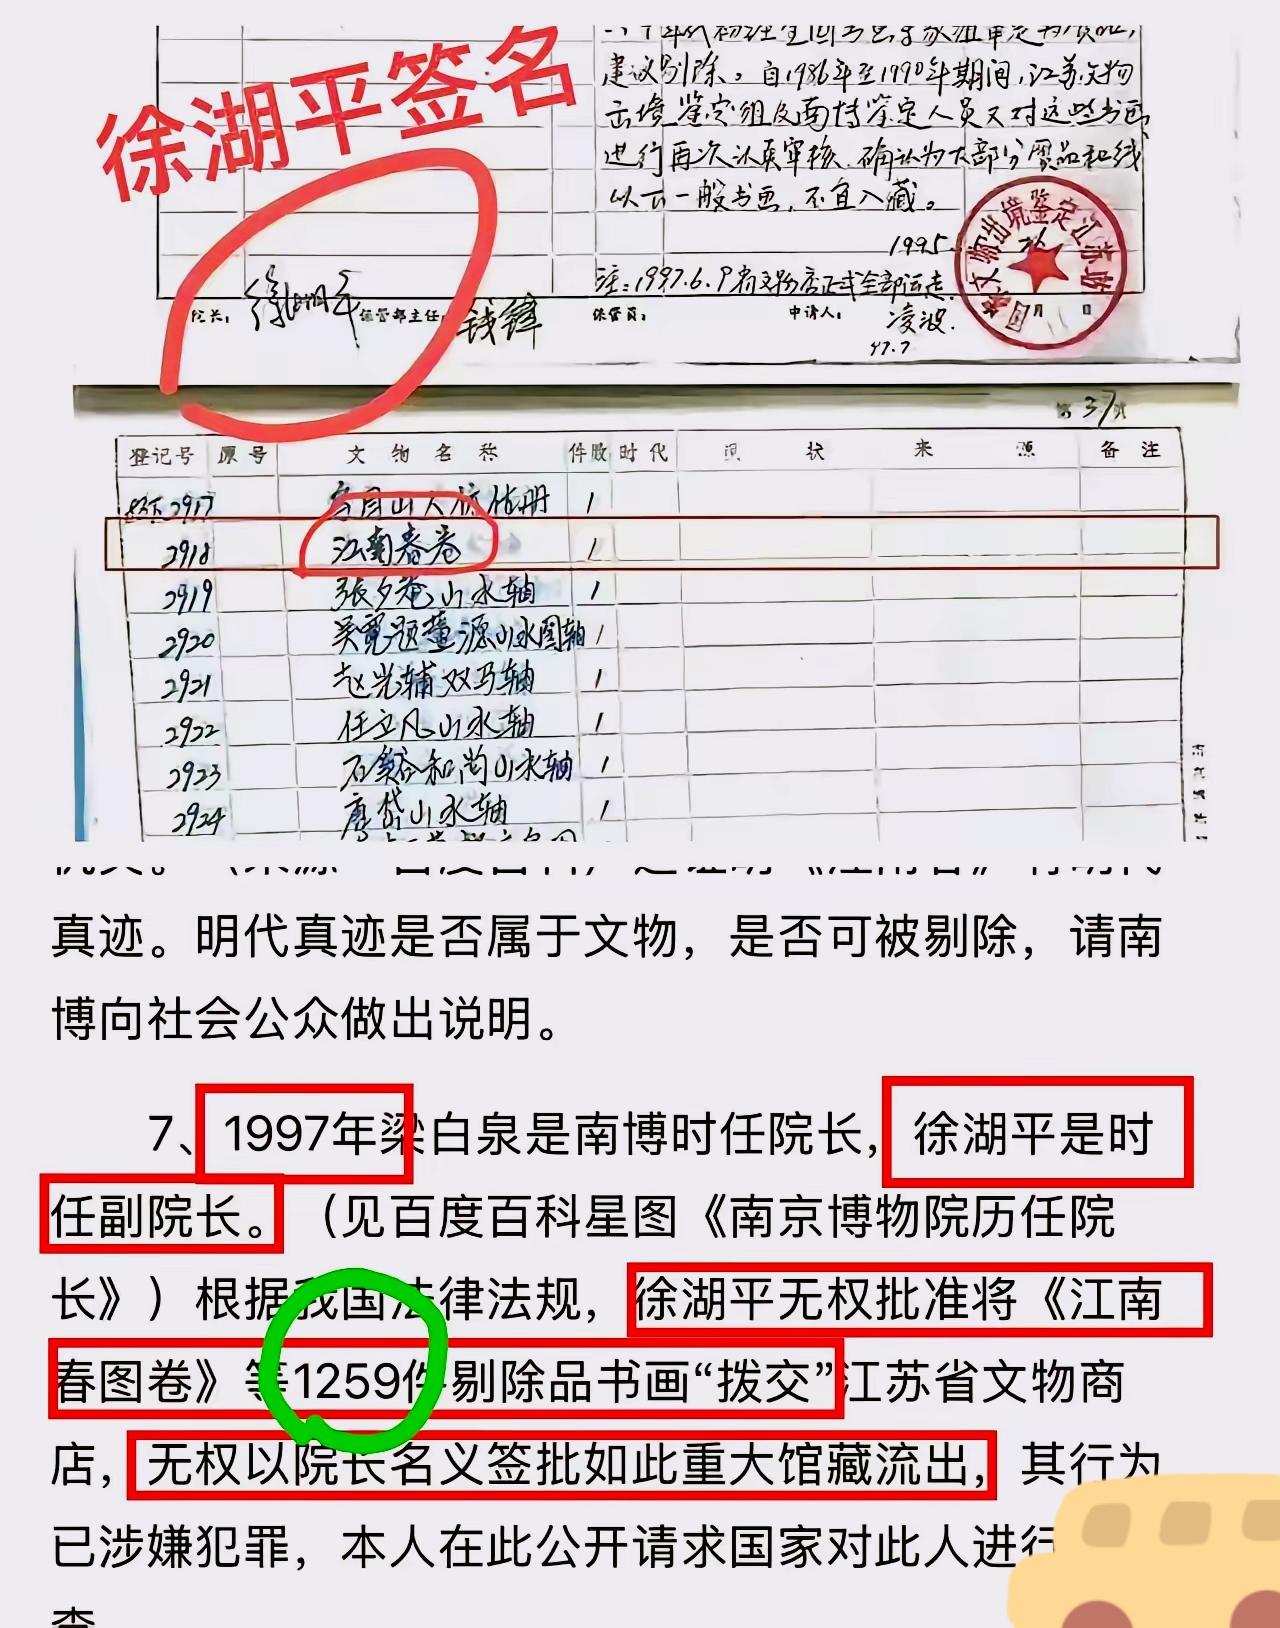 徐湖平签名
建议剔除。自1986年至1990年期间,江苏文物
出境鉴定组及南博鉴定人员又对这些书画
进行再次认真审核,确认为大部分赝品和线
以下一般书画,不宜入藏。
1995.
注:1997.6.9有文物店正式全部运走.
院长: 徐湖平 保管部主任: 钱锋 保管员: 申请人: 凌波.
97.7
月 日
第37页
登记号 原号 文物名称 件数 时代 现状 来源 备注
2917 1
2918 江南春卷 1
2919 张夕庵山水轴 1
2920 吴宽题董源山水图轴 1
2921 赵光辅双马轴 1
2922 任立凡山水轴 1
2923 石谿和尚山水轴 1
2924 唐岱山水轴 1
真迹。明代真迹是否属于文物，是否可被剔除，请南
博向社会公众做出说明。
7、1997年梁白泉是南博时任院长，徐湖平是时
任副院长。（见百度百科星图《南京博物院历任院
长》）根据我国法律法规，徐湖平无权批准将《江南
春图卷》等1259件剔除品书画“拨交”江苏省文物商
店，无权以院长名义签批如此重大馆藏流出，其行为
已涉嫌犯罪，本人在此公开请求国家对此人进行
查